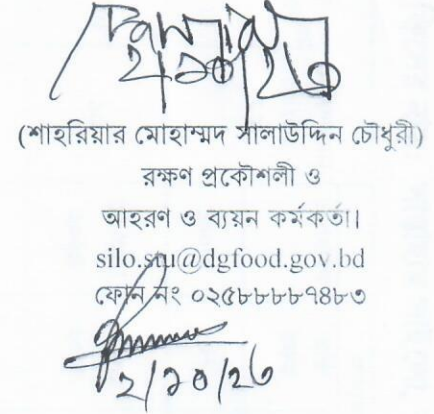 (শাহরিয়ার মোহাম্মদ সালাউদ্দিন চৌধুরী)
রক্ষণ প্রকৌশলী ও
আহরণ ও ব্যয়ন কর্মকর্তা।
silo.stu@dgfood.gov.bd
ফোন নং ০২৫৮৮৮৮৭৪৮৩